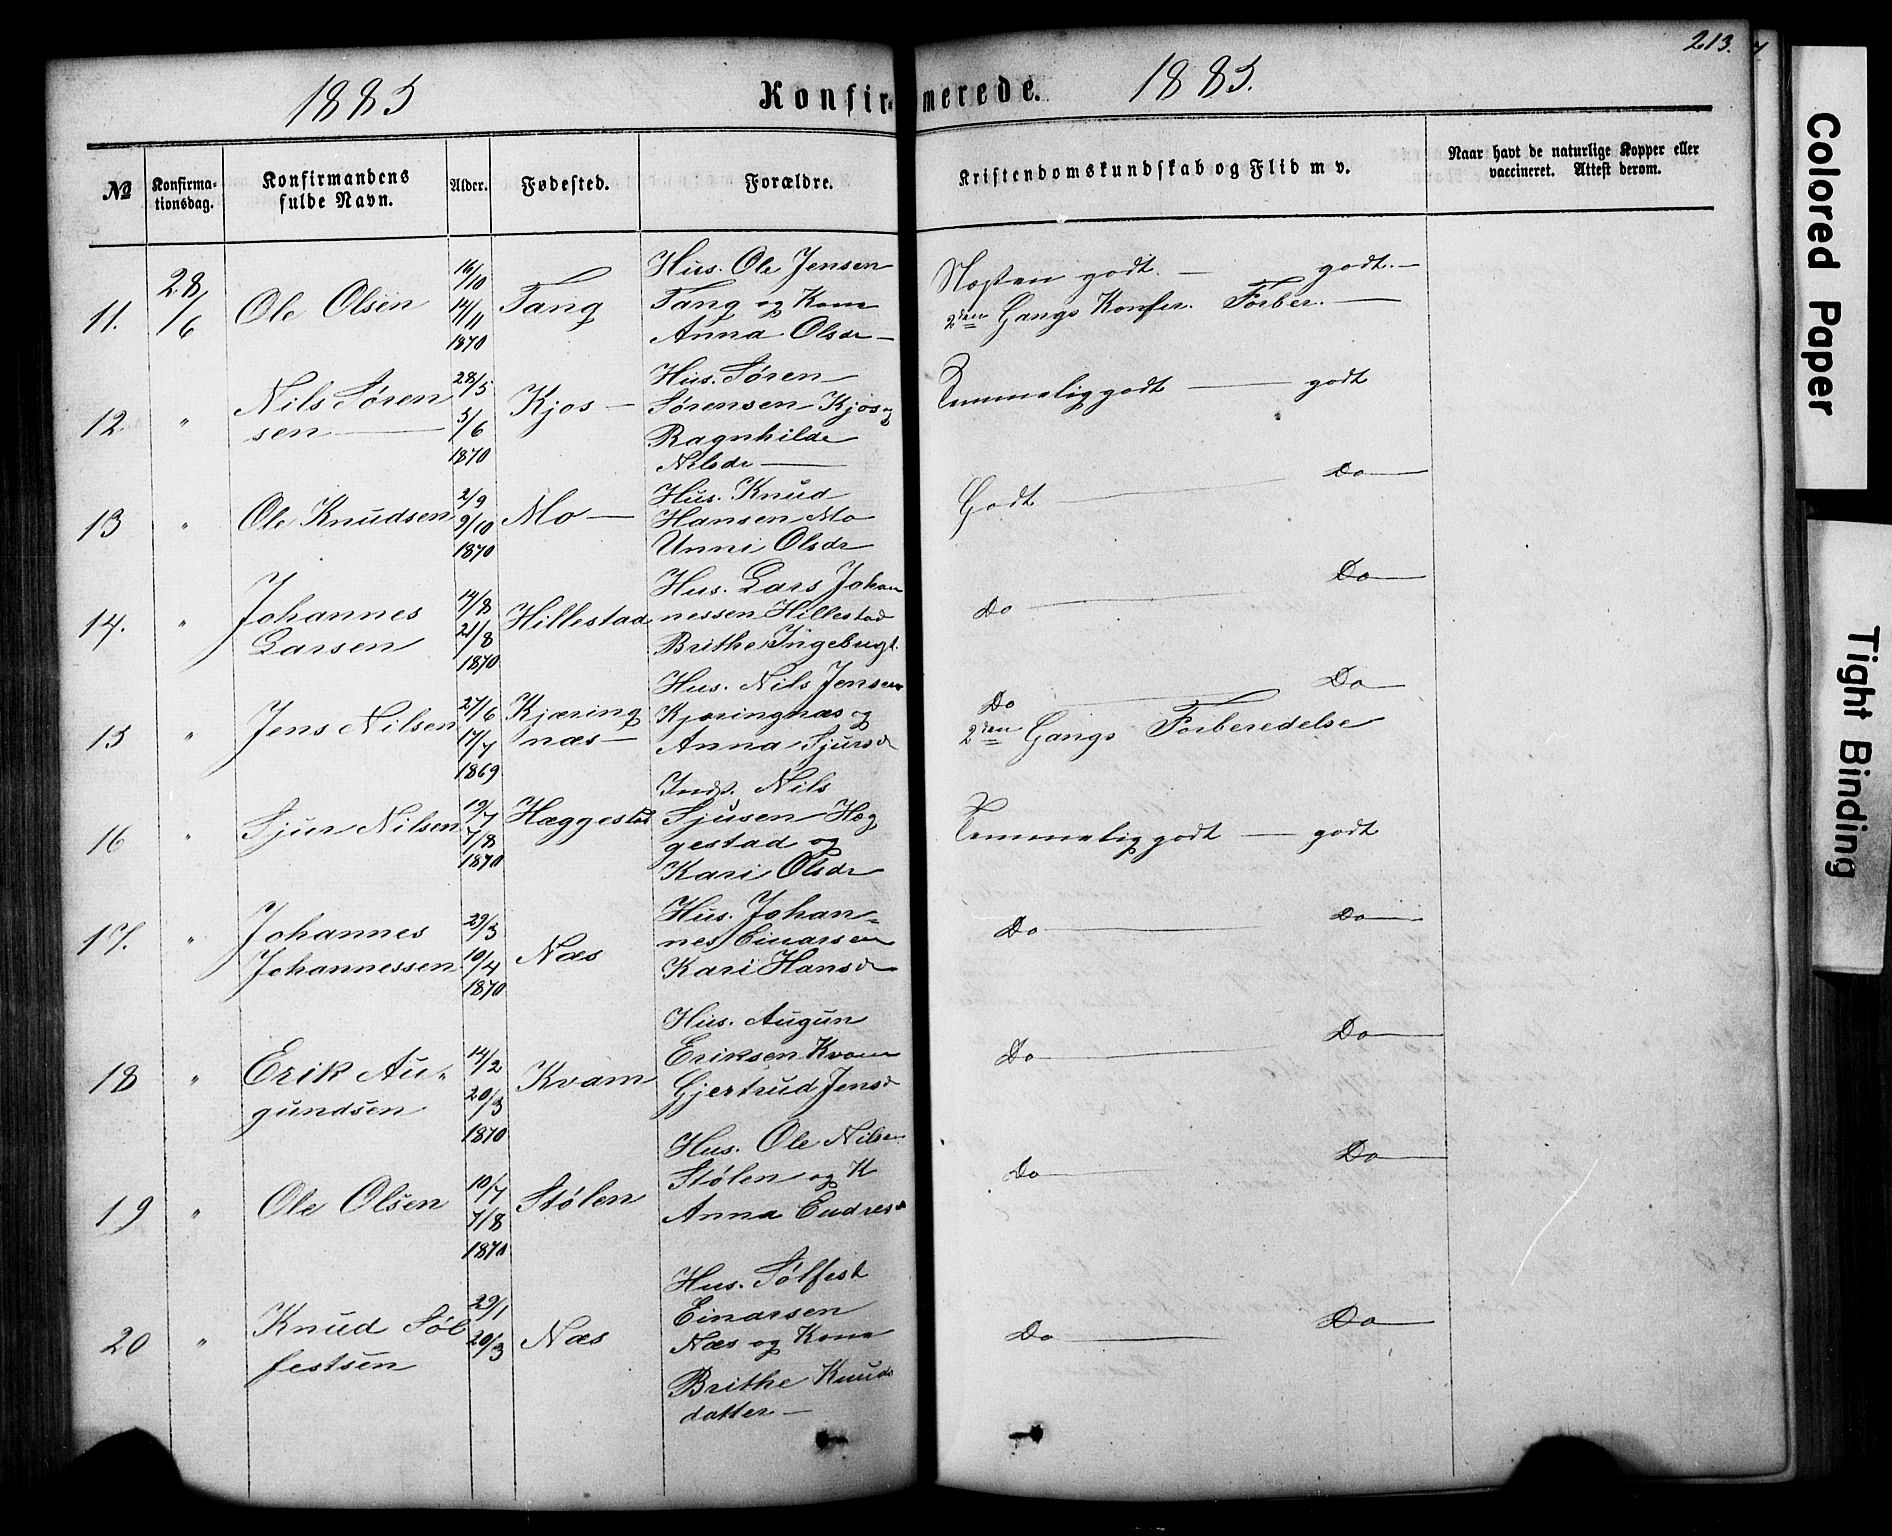 213.
1885 Konfirmerede. 1885.
№ Konfirmationsdag. Konfirmandens fulde Navn. Alder. Fødested. Forældre. Kristendomskundskab og Flid m v. Naar havt de naturlige Kopper eller vaccineret. Attest derom.
11. 28/6 Ole Olsen 16/10 14/11 1870 Tang
Hus. Ole Jensen
Tang og Kone
Anna Olsdr
Næsten godt. — godt. —
2den Gangs Konfir. Forber. —
12 " Nils Søren
sen — 28/5 5/6 1870 Kjos —
Hus. Søren
Sørensen Kjos og
Ragnhilde
Nilsdr —
Temmelig godt — godt
13 " Ole Knudsen 2/9 9/10 1870 Mo —
Hus. Knud
Hansen Mo
Unni Olsdr
Godt — Do —
14. " Johannes
Larsen 14/8 21/8 1870 Hillestad
Hus. Lars Johan
nessen Hillestad
Brithe Ingebrigt.
Do — Do —
15 " Jens Nilsen 27/6 17/7 1869 Kjæring
næs —
Hus. Nils Jensen
Kjæringnæs og
Anna Sjursd
Do — Do —
2den Gangs Forberedelse
16 " Sjur Nilsen 19/7 7/8 1870 Hæggestad
Inds. Nils
Sjusen Hæg
gestad og
Kari Olsdr
Temmelig godt — godt
17. " Johannes
Johannessen 29/3 10/4 1870 Næs
Hus. Johan-
nes Einarsen
Kari Hansd
Do — Do —
18 " Erik Au-
gundsen 14/2 20/3 1870 Kvam
Hus. Augun
Eriksen Kvam
Gjertrud Jensd
Do — Do —
19 " Ole Olsen 10/7 7/8 1870 Stølen
Hus. Ole Nilsen
Stølen og K
Anna Endresd
Do — Do —
20 " Knud Søl
festsen 29/1 20/3 Næs
Hus. Sølfest
Einarsen
Næs og Kone
Brithe Knuds
datter —
Do — Do —
Colored Paper
Tight Binding